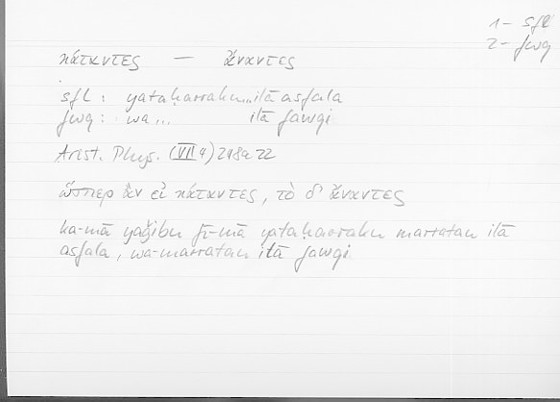 1 – sfl
2 – fwq
κάταντες — ἄναντες
sfl : yataḥarraku...ilā asfala
fwq : wa... ilā fawqi
Arist. Phys. (VII 4) 248a22
ὥσπερ ἂν εἰ κάταντες, τὸ δ' ἄναντες
ka-mā yaǧibu fī-mā yataḥarraku marratan ilā
asfala, wa-marratan ilā fawqi